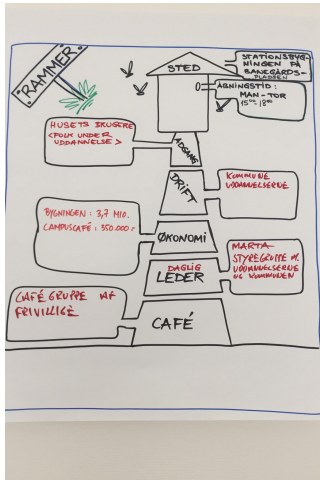 RAMMER
STED
STATIONSBYG-
NINGEN PÅ
BANEGÅRDS-
PLADSEN
ÅBNINGSTID:
MAN-TOR
15⁰⁰-18⁰⁰
HUSETS BRUGERE
<FOLK UNDER
UDDANNELSE>
ADGANG
DRIFT
KOMMUNE
UDDANNELSERNE
BYGNINGEN: 3,7 MIO.
CAMPUSCAFÉ: 350.000 r
ØKONOMI
DAGLIG
LEDER
MARTA-
STYREGRUPPE M.
UDDANNELSERNE
OG KOMMUNEN
CAFÉGRUPPE AF
FRIVILLIGE
CAFÉ